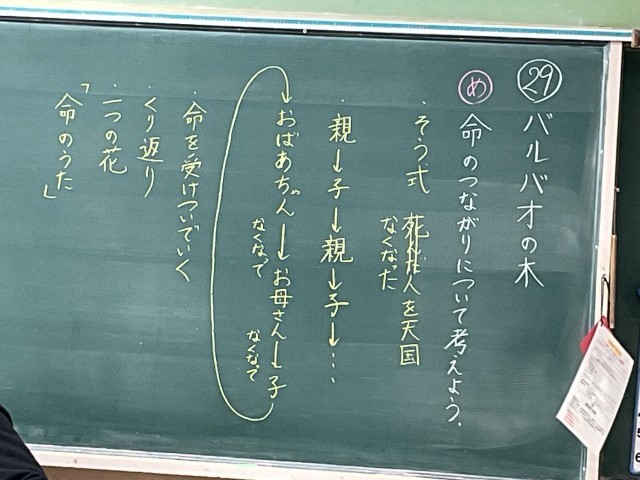 ㉙ バルバオの木
め 命のつながりについて考えよう。
・そう式 死んだ人を天国
なくなった
・親→子→親→子→…
おばあちゃん→お母さん→子
なくなって
なくなって
・命を受けついでいく
・くり返り
・一つの花
「命のうた」